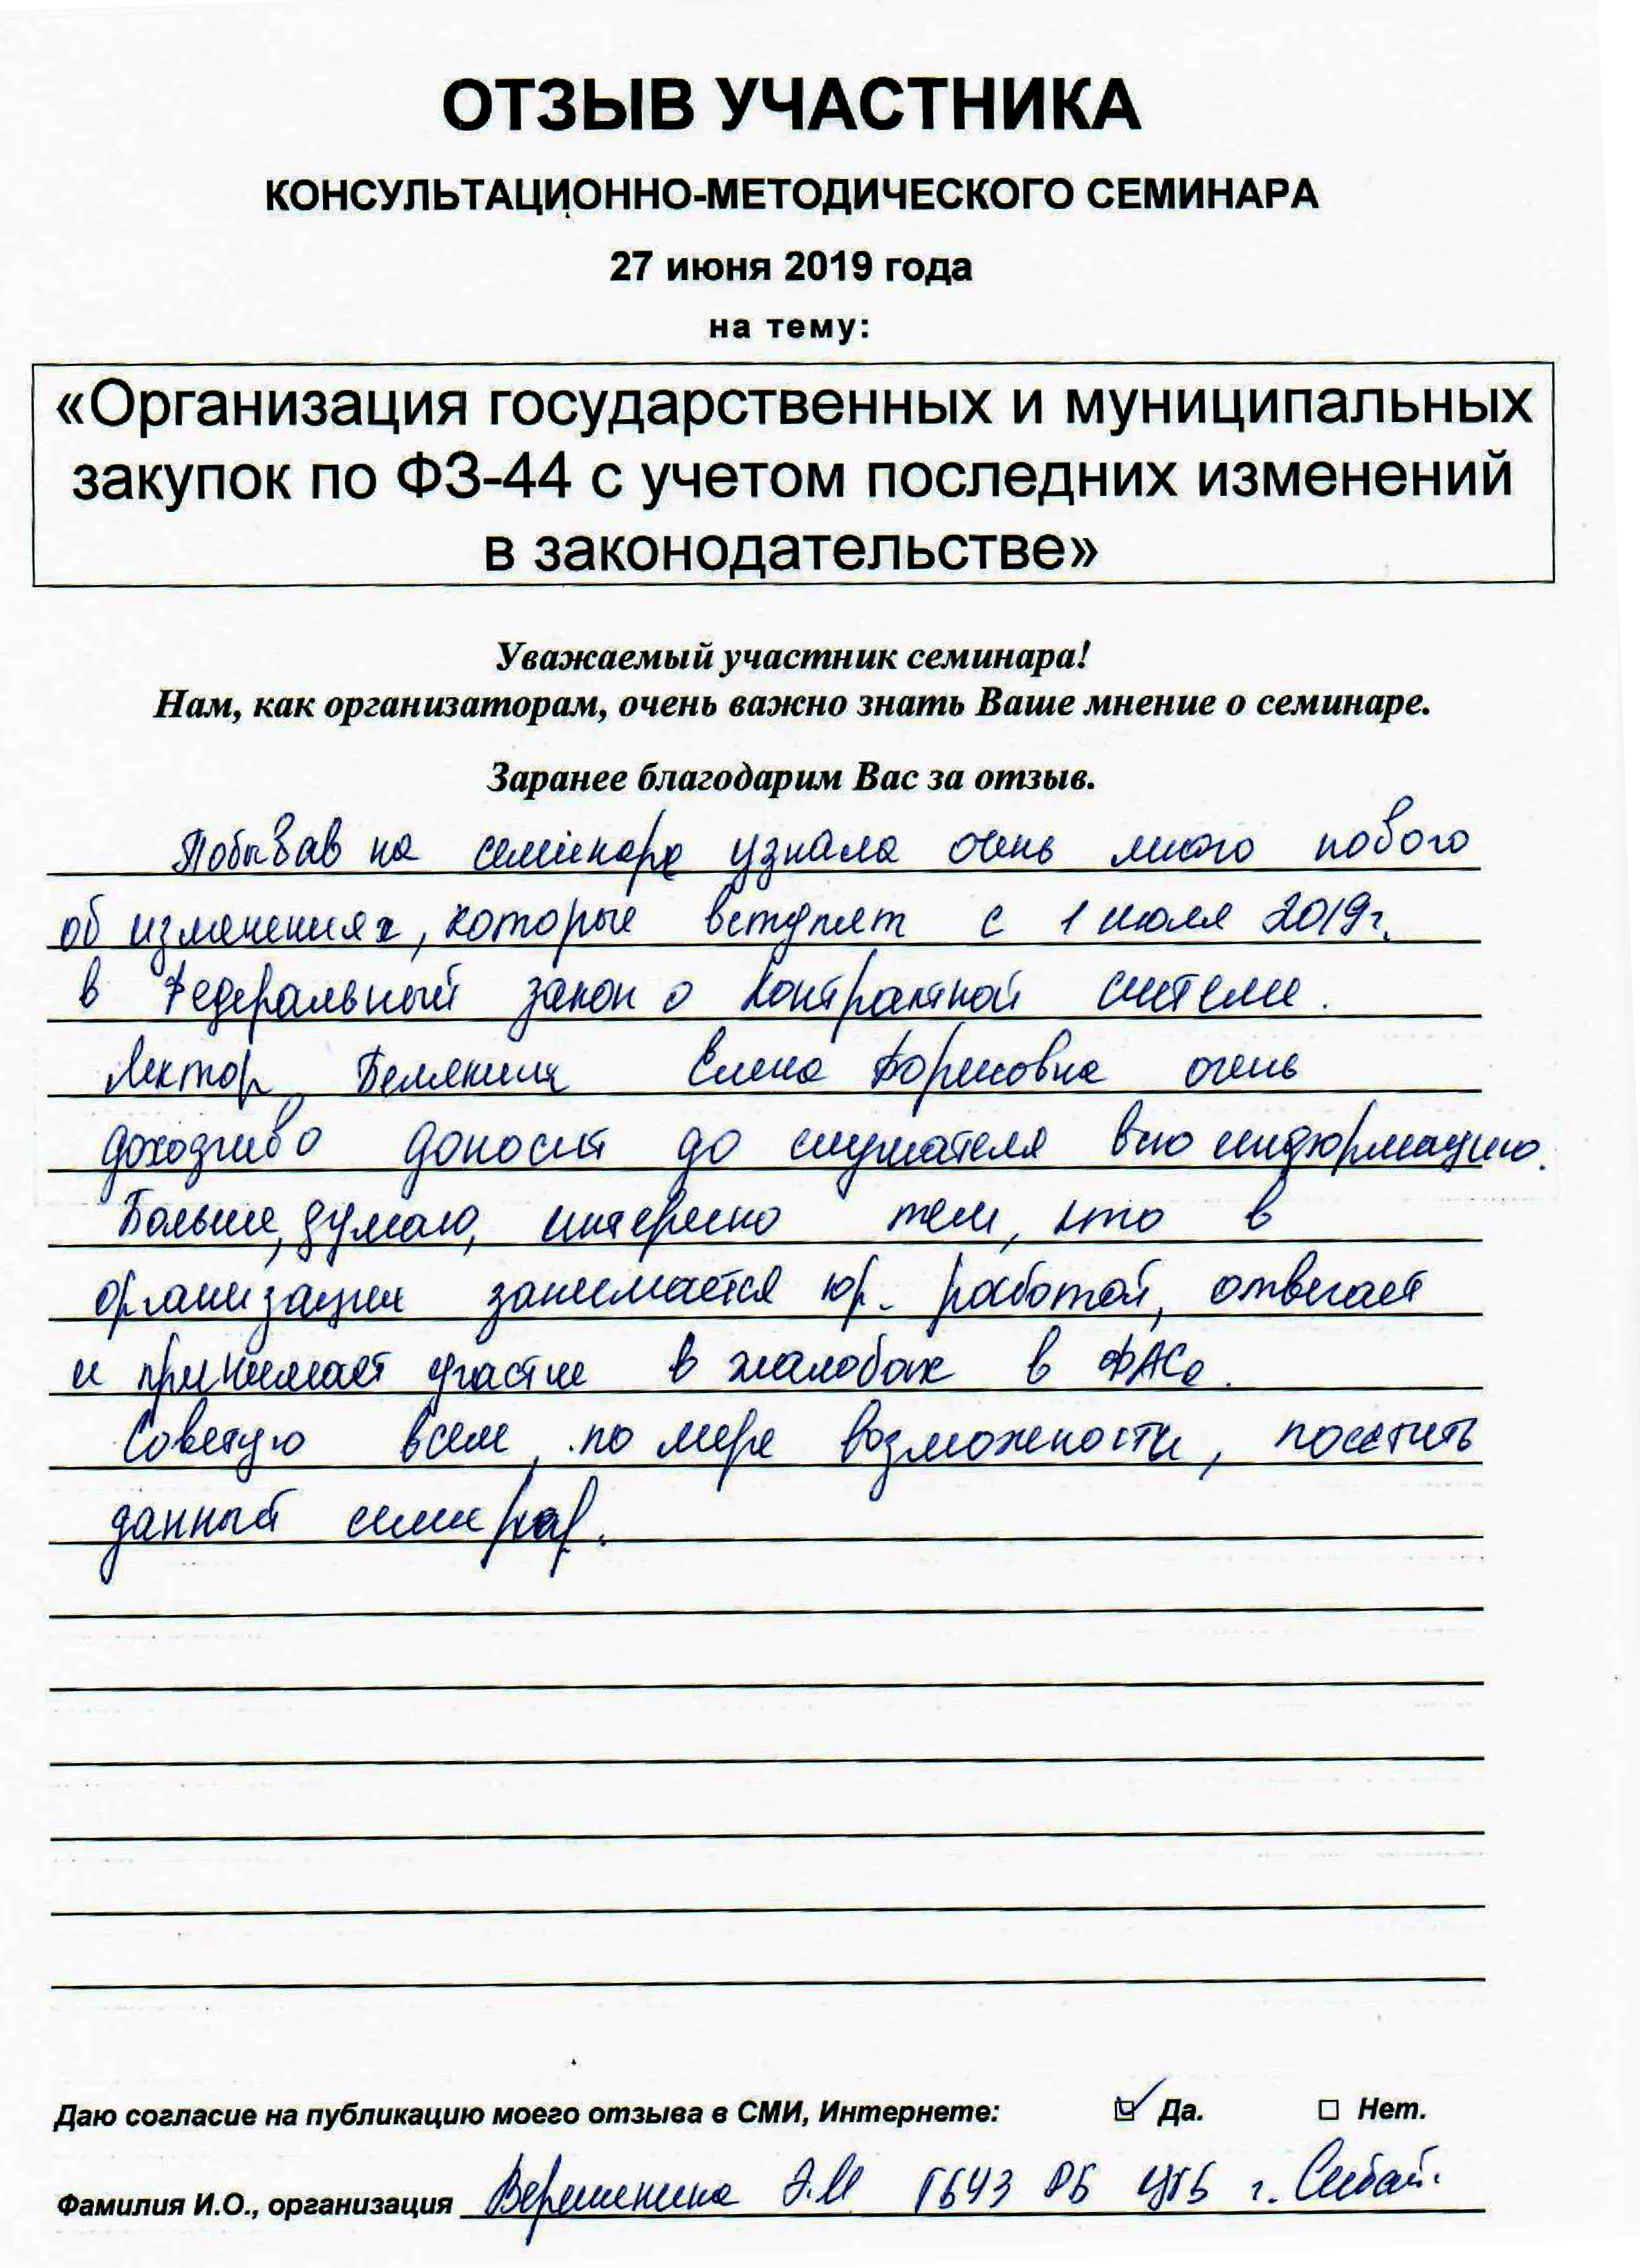 ОТЗЫВ УЧАСТНИКА
КОНСУЛЬТАЦИОННО-МЕТОДИЧЕСКОГО СЕМИНАРА
27 июня 2019 года
на тему:
«Организация государственных и муниципальных
закупок по ФЗ-44 с учетом последних изменений
в законодательстве»
Уважаемый участник семинара!
Нам, как организаторам, очень важно знать Ваше мнение о семинаре.
Заранее благодарим Вас за отзыв.
Побывав на семинаре узнала очень много нового
об изменениях, которые вступят с 1 июля 2019г.
в Федеральный закон о контрактной системе.
Лектор Елена Борисовна очень
доходчиво доносит до слушателя всю информацию.
Больше, думаю, интересно тем, кто в
организации занимается юр. работой, отвечает
и принимает участие в жалобах в ФАСе.
Советую всем, по мере возможности, посетить
данный семинар.
Даю согласие на публикацию моего отзыва в СМИ, Интернете: Да. Нет.
Фамилия И.О., организация Э.М ГБУЗ РБ ЦГБ г. Сибай.